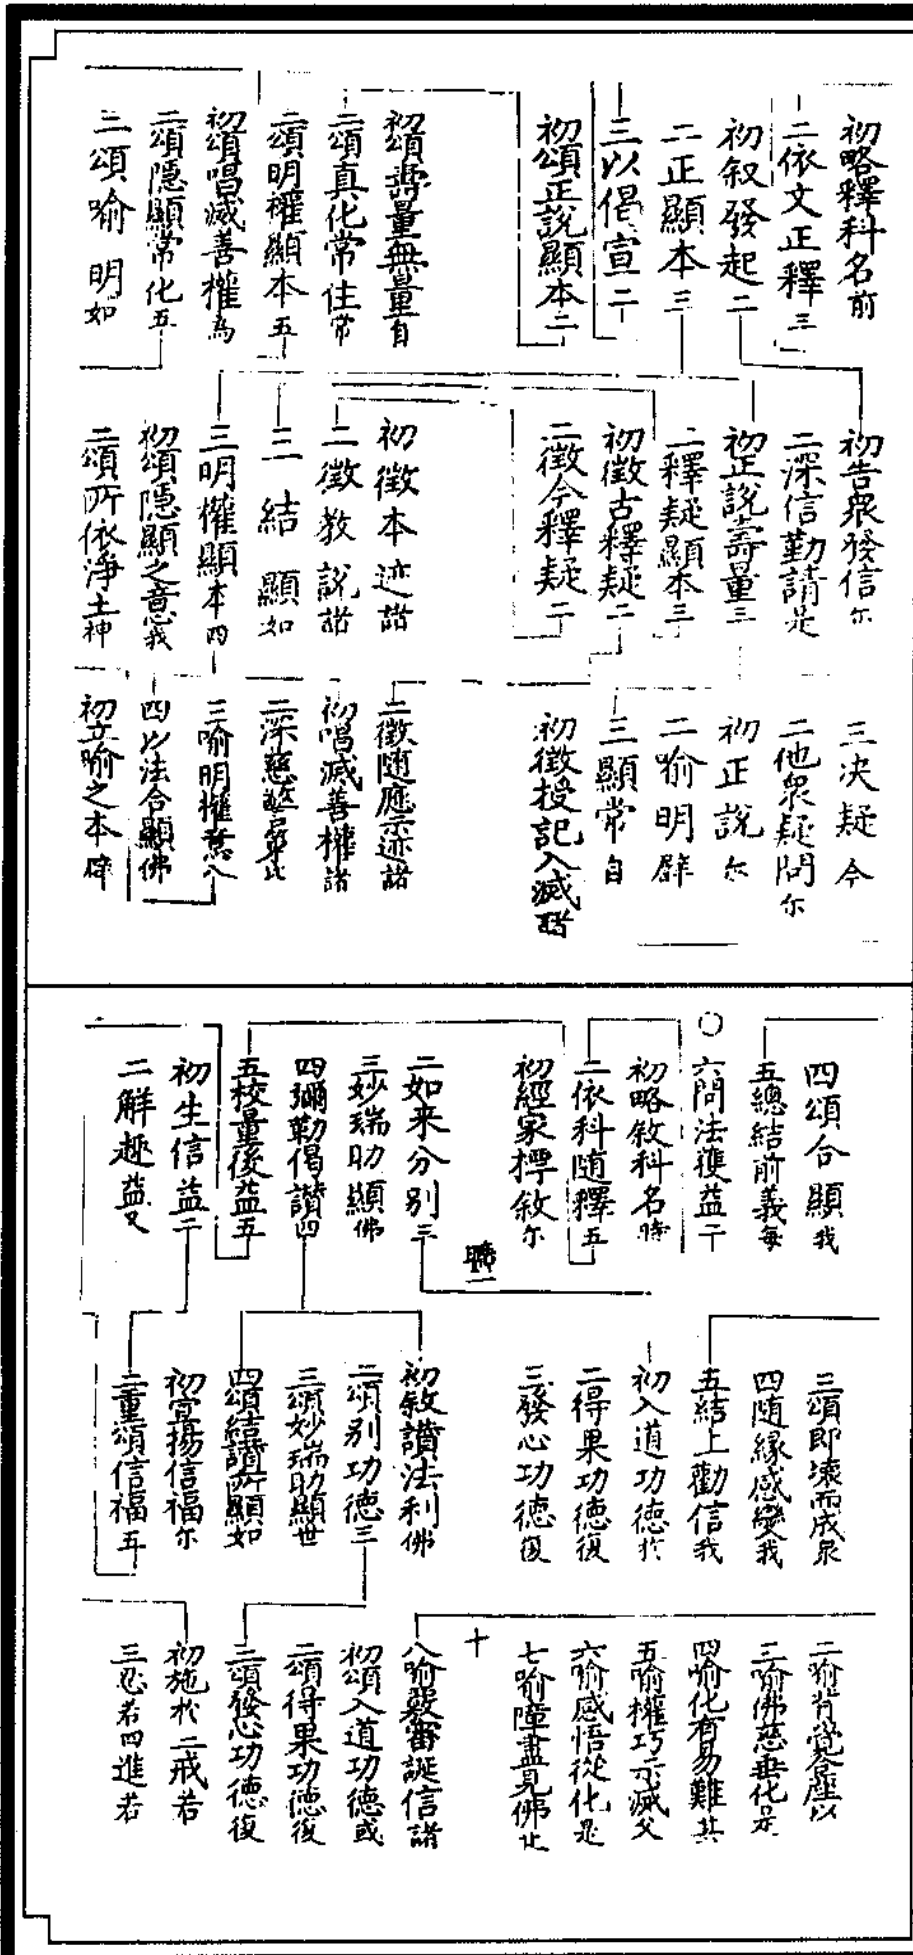 初略釋科名前
二依文正釋三
初叙發起二
二正顯本三
三以偈宣二
初頌正說顯本二
初頌壽量無量自
二頌真化常住常
三頌明權顯本五
初頌唱滅善權為
二頌隱顯常化五
三頌喻明如
初告眾發信尔
二深信勤請是
初正說壽量三
二釋疑顯本三
初徵古釋疑二
二徵今釋疑二
初徵本迹諸
二徵教說諸
三結顯如
三明權顯本四
初頌隱顯之意我
二頌所依淨土神
三決疑今
二他眾疑問尔
初正說尔
二喻明譬
三顯常自
初徵授記入滅諸
二徵随應示迹諸
初唱滅善權諸
二深慈警弟比
三喻明權意八
四以法合顯佛
初立喻之本譬
四頌合顯我
五總結前義每
○
六問法獲益二
初略敘科名時
二依科随釋五
初經家標敘尔
二如来分别三
三妙瑞助顯佛
四彌勒偈讃四
五校量後益五
初生信益二
二解趣益又
三頌即壞而成眾
四随緣感變我
五結上勸信我
初入道功德於
二得果功德復
三發心功德復
初敘讃法利佛
二頌别功德三
三頌妙瑞助顯世
四頌結讃所顯如
初宣揚信福尔
二重頌信福五
二喻背覺合塵以
三喻佛慈垂化是
四喻化有易難其
五喻權巧示滅父
六喻感悟從化是
七喻障盡見佛其
十
八喻覈審誕信諸
初頌入道功德或
二頌得果功德復
三頌發心功德復
初施於二戒若
三忍若四進若